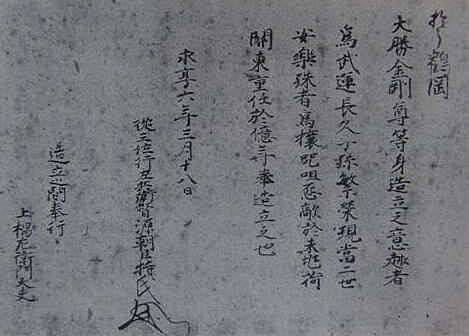 於鶴岡
大勝金剛尊等身造立之意趣者
為武運長久子孫繁栄現当二世
安楽殊者為攘咒咀怨敵於未兆荷
関東重任於億年奉造立之也
永享六年三月十八日
従三位行左兵衛督源朝臣持氏
造立之間奉行
上椙左衛門大夫